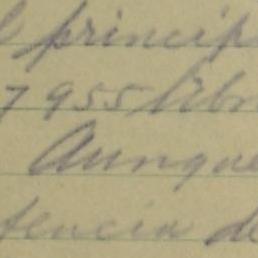 l princip
7955 libr
Aunque
tencia de